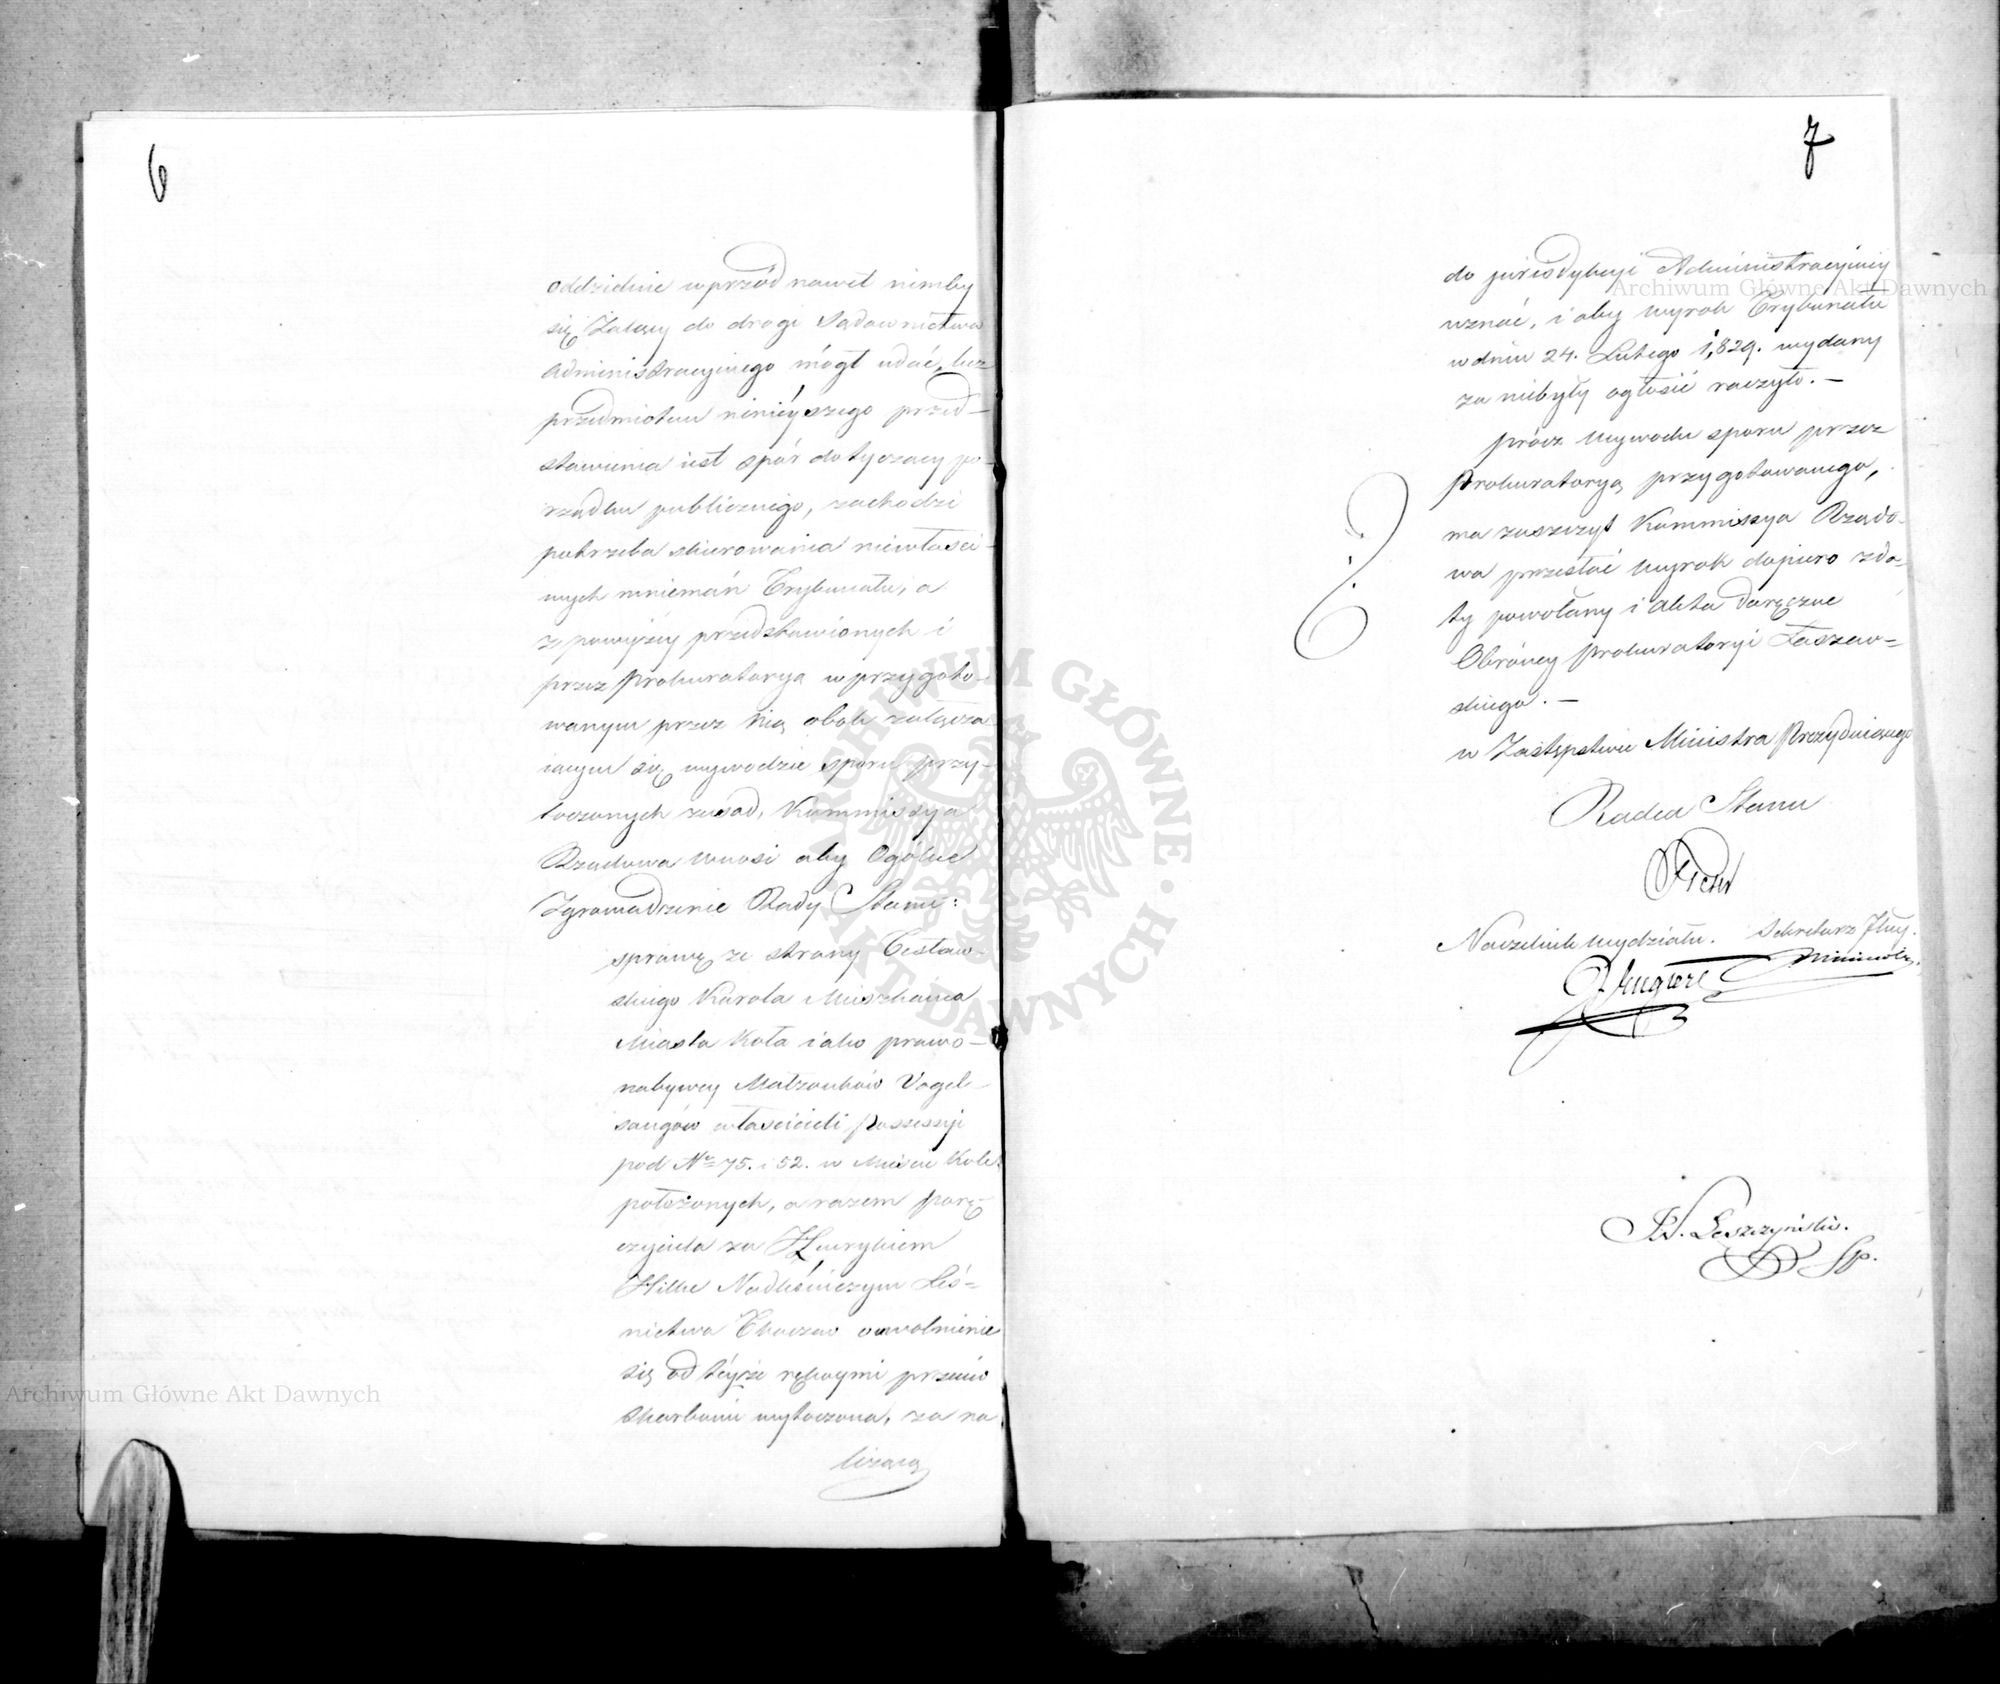 6
oddzielnie wprzód nawet nimby
się Żalący do drogi Sądownictwa
Administracyinego mógł udać, lecz
przedmiotem ninieyszego przed-
stawienia iest spór dotyczący po-
rządku publicznego, zachodzi
potrzeba skierowania niewłaści-
wych mniemań Trybunału, a
z powyżey przedstawionych i
przez Prokuratoryą w przygoto-
wanym przez Nią obok załącza
iącym się wywodzie sporu przy-
toczonych zasad, Kommissya
Rządowa wnosi aby Ogólne
Zgromadzenie Rady Stanu:
sprawę ze strony
skiego Karola Mieszkańca
Miasta Koła iako prawo-
nabywcy Małżonków Vogel-
sangów właścicieli Possessyi
pod Nr 75. i 52. w Mieście Kole
położonych, a razem porę-
czyciela za Henrykiem
Hilke Nadleśniczym Leś-
nictwa o uwolnienie
się od téyże rękoymi przeciw
Skarbowi wytoczoną, za na
leżącą
7
do jurisdykcyi Administracyiney
uznać, i aby wyrok Trybunału
w dniu 24. Lutego 1,829. wydany
za niebyły ogłosić raczyło. —
prócz wywodu sporu przez
Prokuratoryą przygotowanego,
ma zaszczyt Kommissya Rządo-
wa przesłać wyrok dopiero z da-
ty powołany i akta doręczne
Obrońcy prokuratoryi Łaszew-
skiego. —
w Zastępstwie Ministra Prezyduiącego
Radca Stanu
Naczelnik wydziału. Sekretarz Jlny.
Leszczyński.
Sp.
Archiwum Główne Akt Dawnych
Archiwum Główne Akt Dawnych
ARCHIWUM GŁÓWNE AKT DAWNYCH